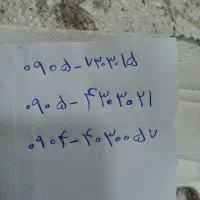 ۰۹۰۵-۷۳۰۳۰۱۵
۰۹۰۵-۴۳۰۳۰۲۱
۰۹۰۴-۴۰۳۰۰۵۷